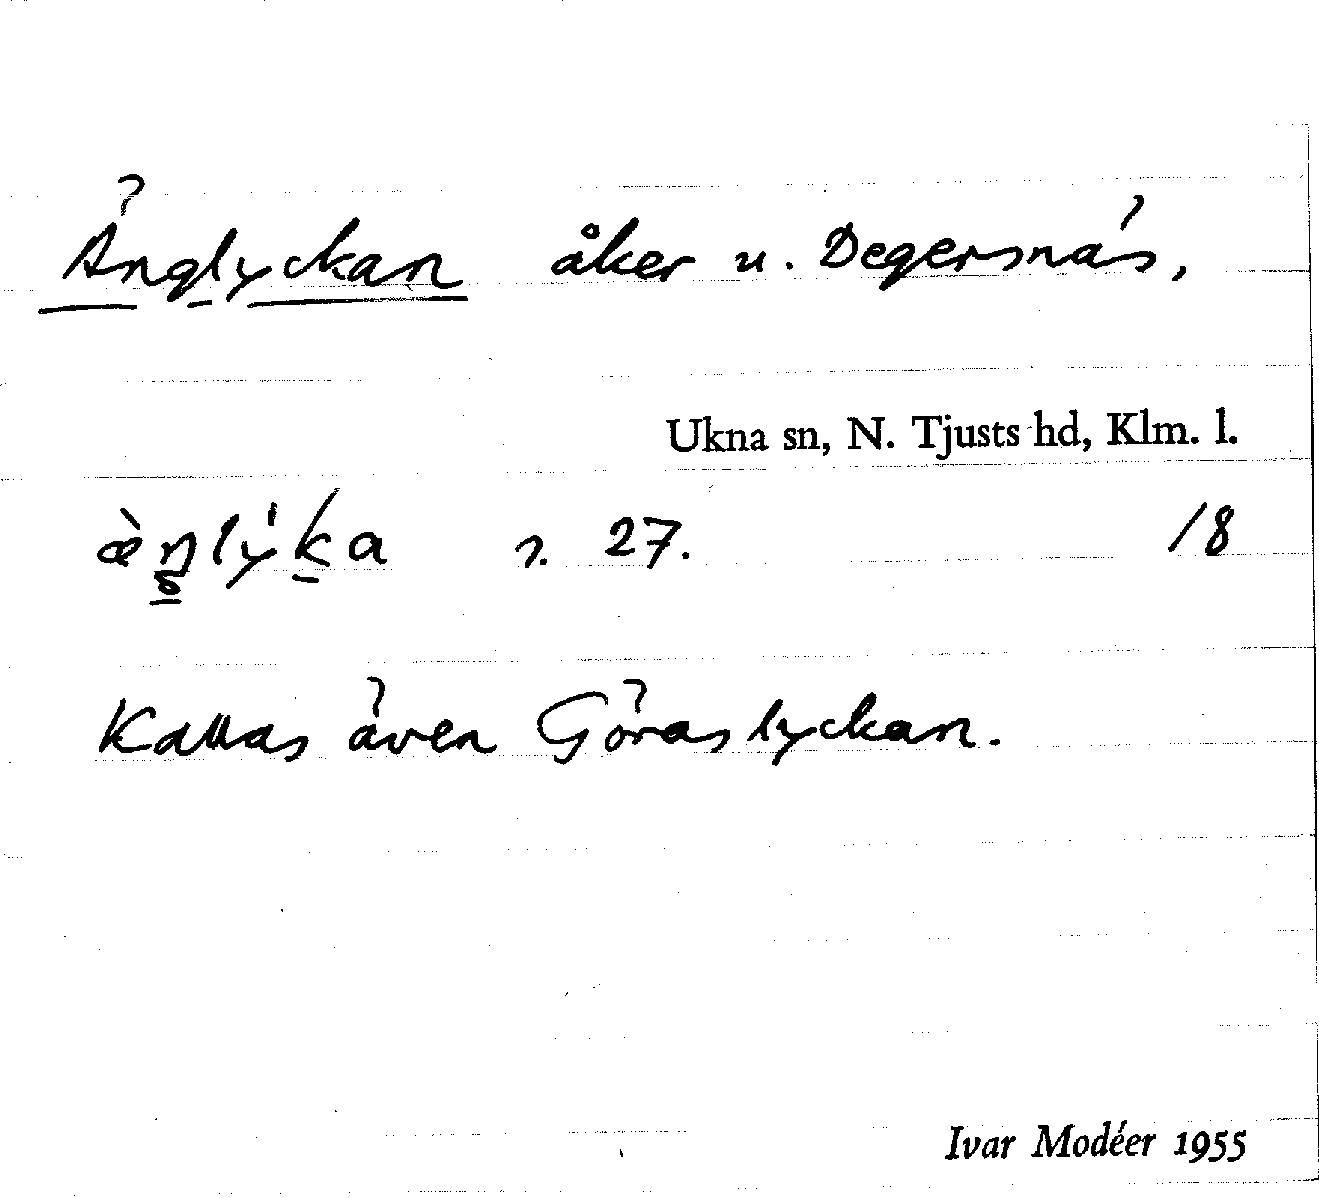 Änglyckan åker u. Degersnäs,
Ukna sn, N. Tjusts hd, Klm. l.
æ̀ŋlýka 27. /8
Kallas även Göraslyckan.
Ivar Modéer 1955